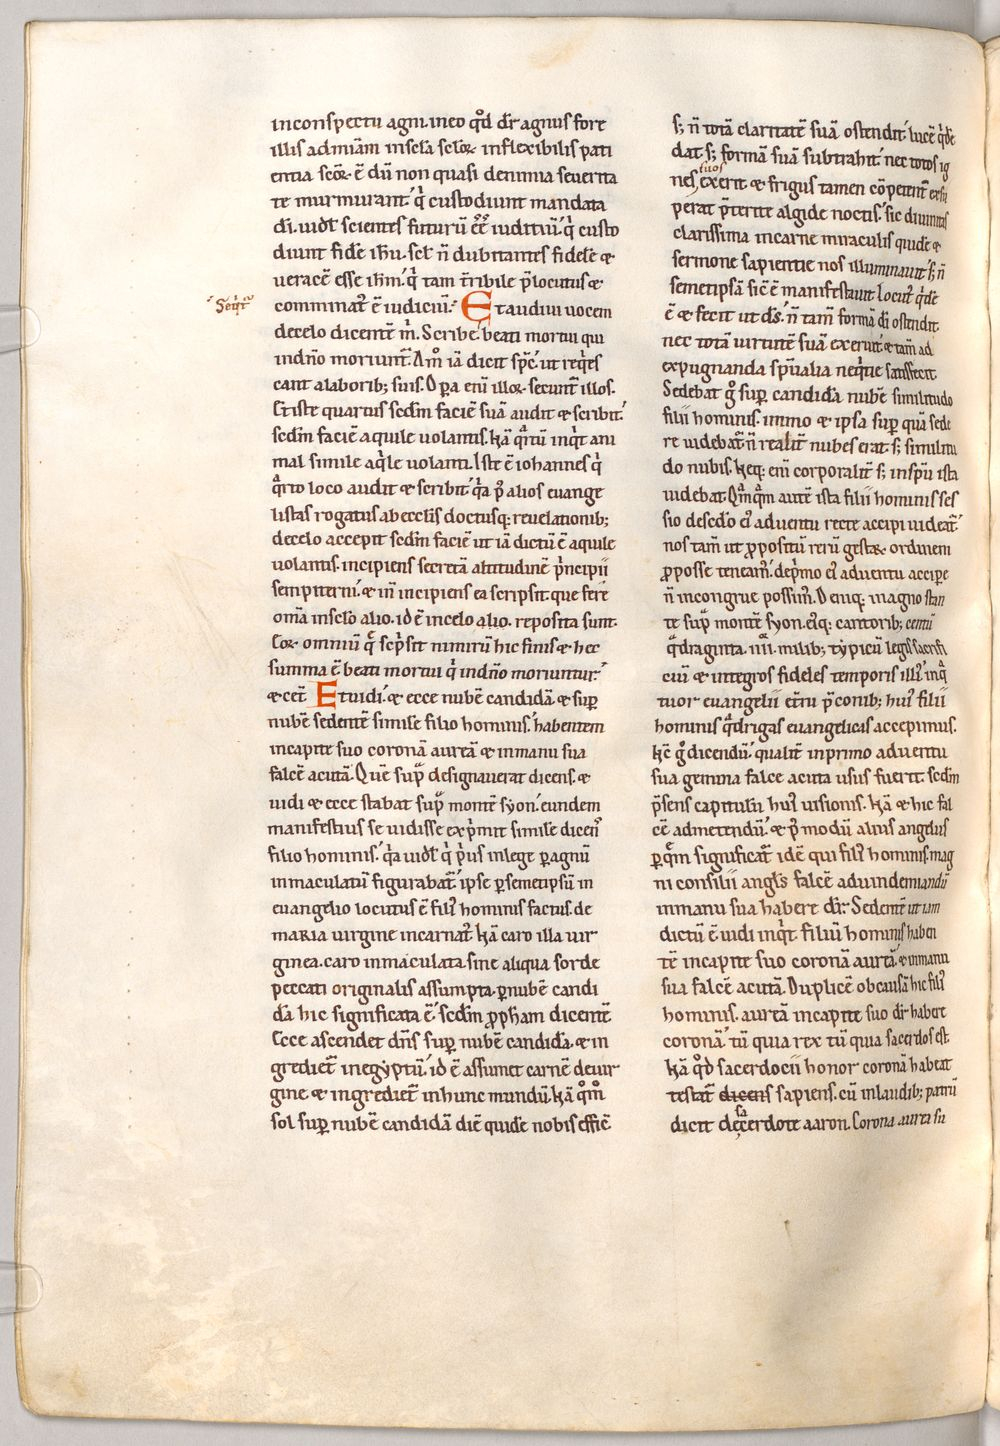 inconspectu agni. ineo q̊d dr̄ agnus fore
illis admiām insc̄la sc̄loꝝ inflexibilis pati
entia sc̄oꝝ ē dū non quasi denimia seuerita
te murmurant. q̇ custodiunt mandata
dī. uidl̄t scientes futurū eē̄ iuditiū. q̇ custo
diunt fidē ihū. scl̄t n̄ dubitantes fidelē ⁊
ueracē esse ihm̄. q̇ tam t̄ribile p̄locutus ⁊
Seq̇t̄
comminat̄ ē iudiciū. Et audiui uocem
decelo dicentē m̄. Scribe. beati mortui qui
indn̄o moriunt̄. Am̊ iā dicit sp̄c. ut reqͥes
cant alaborib; suis. Oꝑa enī illoꝝ secunt̄ illos.
Et iste quartus sedm̄ faciē suā audit ⁊ scribit.
sedm̄ faciē aquile uolantis. hā qᷓtū inqͥt ani
mal simile aqͥle uolanti. Iste ē iohannes q̇
qᷓrto loco audit ⁊ scribit. qͣa p̊ alios euange
listas rogatus abeccl̄is doctusq; reuelationib;
decelo accepit sedm̄ faciē ut iā dictū ē aquile
uolantis. incipiens secretā altitudinē pͥncipii
sempiterni. ⁊ in̄ incipiens ea scripsit. que fere
omā insc̄lo alio. id ē incelo alio. reposita sunt.
Eoꝝ omniū qᷓ scͥpsit nimirū hic finis ⁊ hec
summa ē. beati mortui q̇ indn̄o moriuntur.
⁊ cet̄. Et uidi. ⁊ ecce nubē candidā. ⁊ suꝑ
nubē sedentē simile filio hominis. habentem
incapite suo coronā aureā ⁊ inmanu sua
falcē acutā. Quē supᷓ designauerat dicens. ⁊
uidi ⁊ ecce stabat supᷓ montē syon. eundem
manifestius se uidisse expͥmit simile dicens̄
filio hominis. qͣa uidl̄t q̇ pͥus inlege ꝑagnū
inmaculatū figurabat̄. ipse ꝑsemetipsū in
euangelio locutus ē filiꝰ hominis factus. de
maria uirgine incarnat̄. hā caro illa uir
ginea. caro inmaculata. sine aliqua sorde
peccati originalis assumpta. ꝑnubē candi
dā hic significata ē. sedm̄ ꝓpham dicentē
Ecce ascendet dn̄s suꝑ nubē candidā. ⁊ in
grediet̄ inegyptū. id ē assumet carnē deuir
gine ⁊ ingrediet̄ inhunc mundū. hā qm̊̄
sol suꝑ nubē candidā diē quidē nobis efficē
s; n̄ totā claritatē suā ostendit. lucē qͥdē
dat. s; formā suā subtrahit. nec totos ig
nes suos exerit ⁊ frigus tamen cōpetent̄ exsu
perat p̄terite algide noctis. sic diuinitas
clarissima incarne miraculis quidē ⁊
sermone sapientie nos illuminauit. s; n̄
semetipsā sic ē manifestauit. Locut̄ qͥdē
ē ⁊ fecit ut ds̄. n̄ tam̄ formā dī ostendit.
nec totā uirtutē suā exeruit. ⁊ tam̄ ad
expugnanda sp̄ualia neqͥtie satisfecit.
Sedebat g̊ suꝑ candidā nubē similitudo
filii hominis. immo ⁊ ipsa suꝑ quā sede
re uidebat̄ n̄ realit̄ nubes erat. s; similitu
do nubis. Neq; enī corporalit̄ s; inspū ista
uidebat. Qmͣqͣm autē ista filii hominis ses
sio desedo eiꝰ aduentu recte accipi uideat̄.
nos tam̄ ut ꝓpositū rerū gestaꝝ ordinem
ꝓposse teneam̄. depͥmo eiꝰ aduentu accipe
n̄ incongrue possim̄. Deniq; inagno stan
te supᷓ montē syon. eiq; cantorib; centū
qᷓdraginta. iiii. milib; typicū legis sacrifi
ciū ⁊ integros fideles temporis illiꝰ inqͣ
tuor euangelii etn̄i pͥconib; huiꝰ filii
hominis qᷓdrigas euangelicas accepimus.
Hē g̊ dicendū. qualit̄ inprimo aduentu
sua gemina falce acuta usus fuerit. sedm̄
p̄sens capitulū huiꝰ uisionis. Hā ⁊ hic fal
cē admetendū. ⁊ p̊ modū alius angelus
ꝑ quē significat̄ idē qui filiꝰ hominis. mag
ni consilii angl̄s falcē aduindemiandū
inmanu sua habere dr̄. Sedentē ut iam
dictū ē uidi inqͥt filiū hominis haben
tē incapite suo coronā aureā. ⁊ inmanu
sua falcē acutā. Duplicē ob causā hic filiꝰ
hominis. aureā incapite suo dr̄ habere
coronā. tū quia rex tū quia sacerdos est.
Hā q̊d sacerdocii honor coronā habeat
testat̄ dicens sapiens. cū inlaudib; patrū
dicit de sacerdote aaron. Corona aurea su